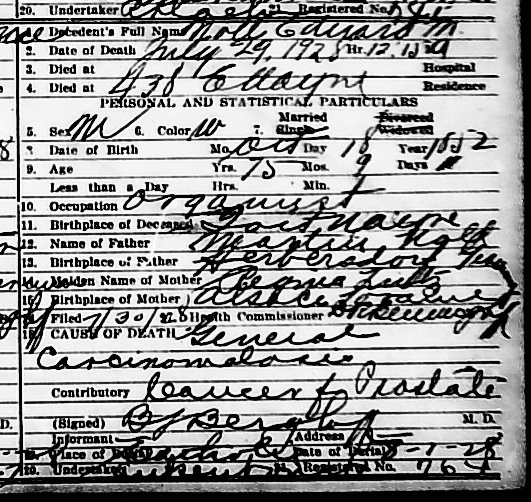 20. Undertaker 21. Registered No.
1. Decedent's Full Name Noll Edward M.
2. Date of Death July 29, 1928 Hr. 12.15 A
3. Died at Hospital
4. Died at 438 E Wayne Residence
PERSONAL AND STATISTICAL PARTICULARS
5. Sex M 6. Color W 7. Married Single Divorced Widowed
8. Date of Birth Mo. Oct Day 18 Year 1852
9. Age Yrs. 75 Mos. 9 Days 11
Less than a Day Hrs. Min.
10. Occupation Organist
11. Birthplace of Deceased Fort Wayne
12. Name of Father Martin Noll
13. Birthplace of Father
14. Maiden Name of Mother
15. Birthplace of Mother Alsace Loraine
16. Filed 7/30/28 Health Commissioner
18. CAUSE OF DEATH General
Carcinomatosis
Contributory Cancer of Prostate
(Signed) M. D.
Informant Address
19. Place of Burial Catholic Date of Burial 8-1-28
20. Undertaker 21. Registered No. 764